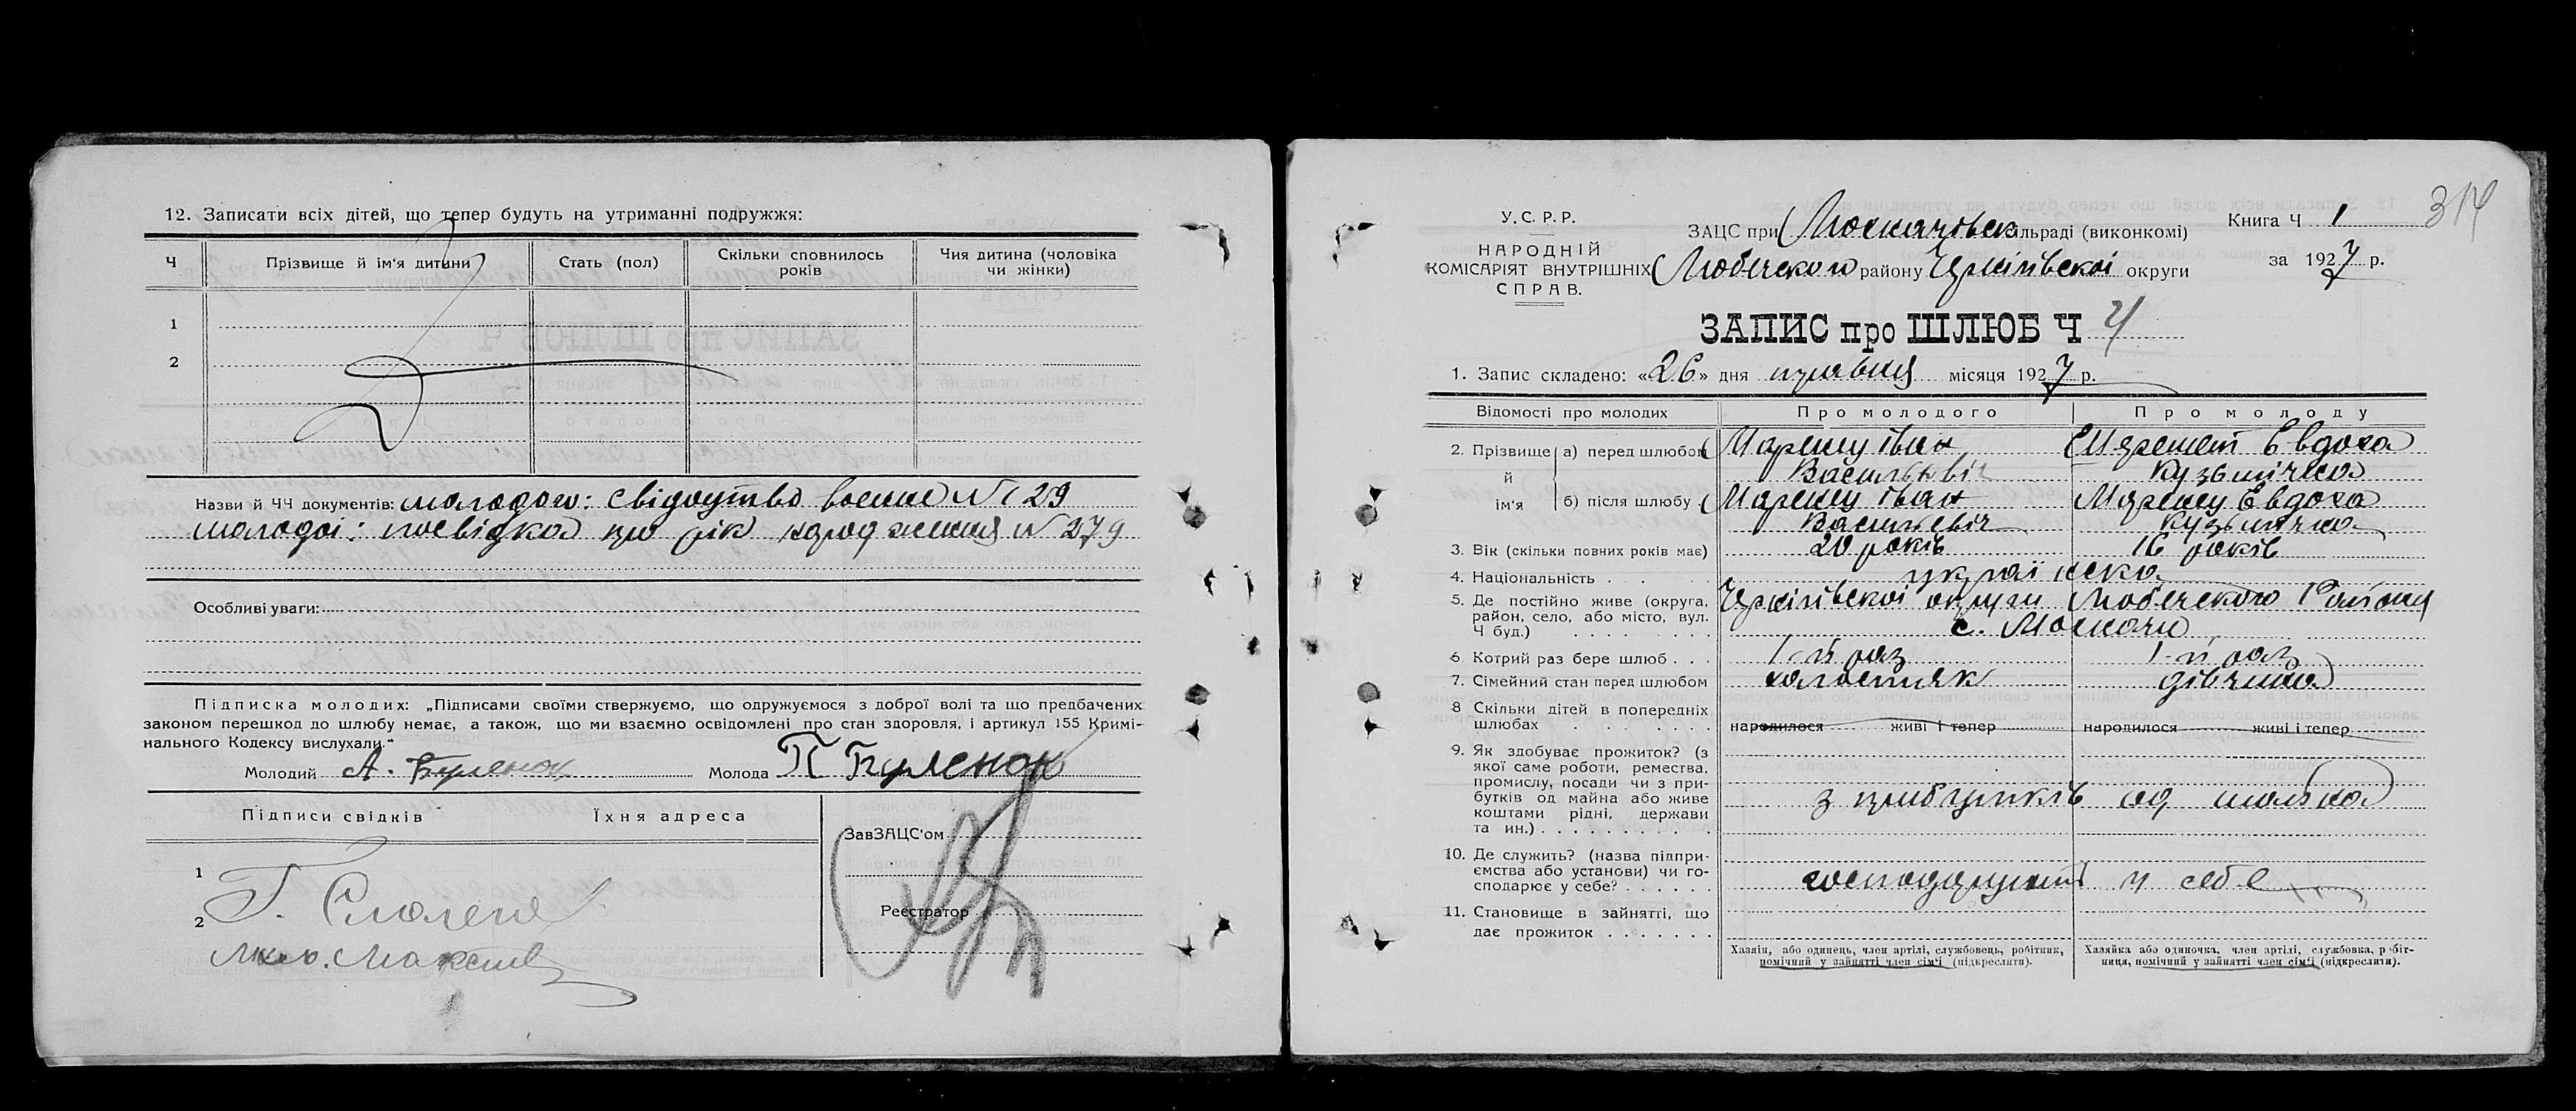 12. Записати всіх дітей, що тепер будуть на утриманні подружжя:
Ч Прізвище й ім'я дитини Стать (пол) Скільки сповнилось років Чия дитина (чоловіка чи жінки)
1
2
Назви й ЧЧ документів: молодого: свідоцтво воєнне № 129
молодої: посвідка про рік народження № 279
Особливі уваги:
Підписка молодих: „Підписами своїми ствержуємо, що одружуємося з доброї волі та що предбачених
законом перешкод до шлюбу немає, а також, що ми взаємно освідомлені про стан здоровля, і артикул 155 Кримі-
нального Кодексу вислухали."
Молодий А. Буленок Молода П Буленок
Підписи свідків Їхня адреса
ЗавЗАЦС'ом
1
Реєстратор
2
У.С.Р.Р.
НАРОДНІЙ
КОМІСАРІЯТ ВНУТРІШНІХ
СПРАВ.
314
ЗАЦС при сільраді (виконкомі) Книга Ч 1
Любечского району Чернігівскої округи за 1927 р.
ЗАПИС про ШЛЮБ Ч 4
1. Запис складено: «26» дня травня місяця 1927 р.
Відомості про молодих Про молодого Про молоду
2. Прізвище й ім'я а) перед шлюбом Іван Євдоха
Васильєвіч Кузьмічна
б) після шлюбу Іван Євдоха
Васильєвіч Кузьмічна
3. Вік (скільки повних років має) 20 років 16 років
4. Національність . . українска
5. Де постійно живе (округа, Чернігівскої округи Любечского Району
район, село, або місто, вул. с.
Ч буд.) . . . . . . . .
6 Котрий раз бере шлюб . . . 1-й раз 1-й раз
7. Сімейний стан перед шлюбом холостяк дівчина
8 Скільки дітей в попередніх
шлюбах . . . . . . народилося живі і тепер народилося живі і тепер
9. Як здобуває прожиток? (з
якої саме роботи, ремества,
промислу, посади чи з при-
бутків од майна або живе з прибутків од
коштами рідні, держави
та ин.) . . . . . . . . . .
10. Де служить? (назва підпри-
ємства або установи) чи го-
сподарює у себе? . . . . . . господарюют у себе
11. Становище в зайнятті, що
дає прожиток . . . . . . .
Хазяін, або одинець, член артілі, службовець, робітник, Хазяйка або одиночка, член артілі, службовка, робіт-
помічний у зайнятті член сім'ї (підкреслити). ниця, помічний у зайнятті член сім'ї (підкреслити).